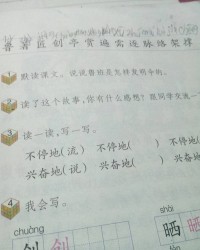 鲁 凿 匠 创 亭 赏 遍 需 连 脉 络 架 撑
1 默读课文。说说鲁班是怎样发明伞的。
2 读了这个故事,你有什么感想?跟同学交流一
3 读一读,写一写。
不停地(流) 不停地( ) 不停地(
兴奋地(说) 兴奋地( ) 兴奋地(
4 我会写。
chuàng
shài
创 创
晒 晒